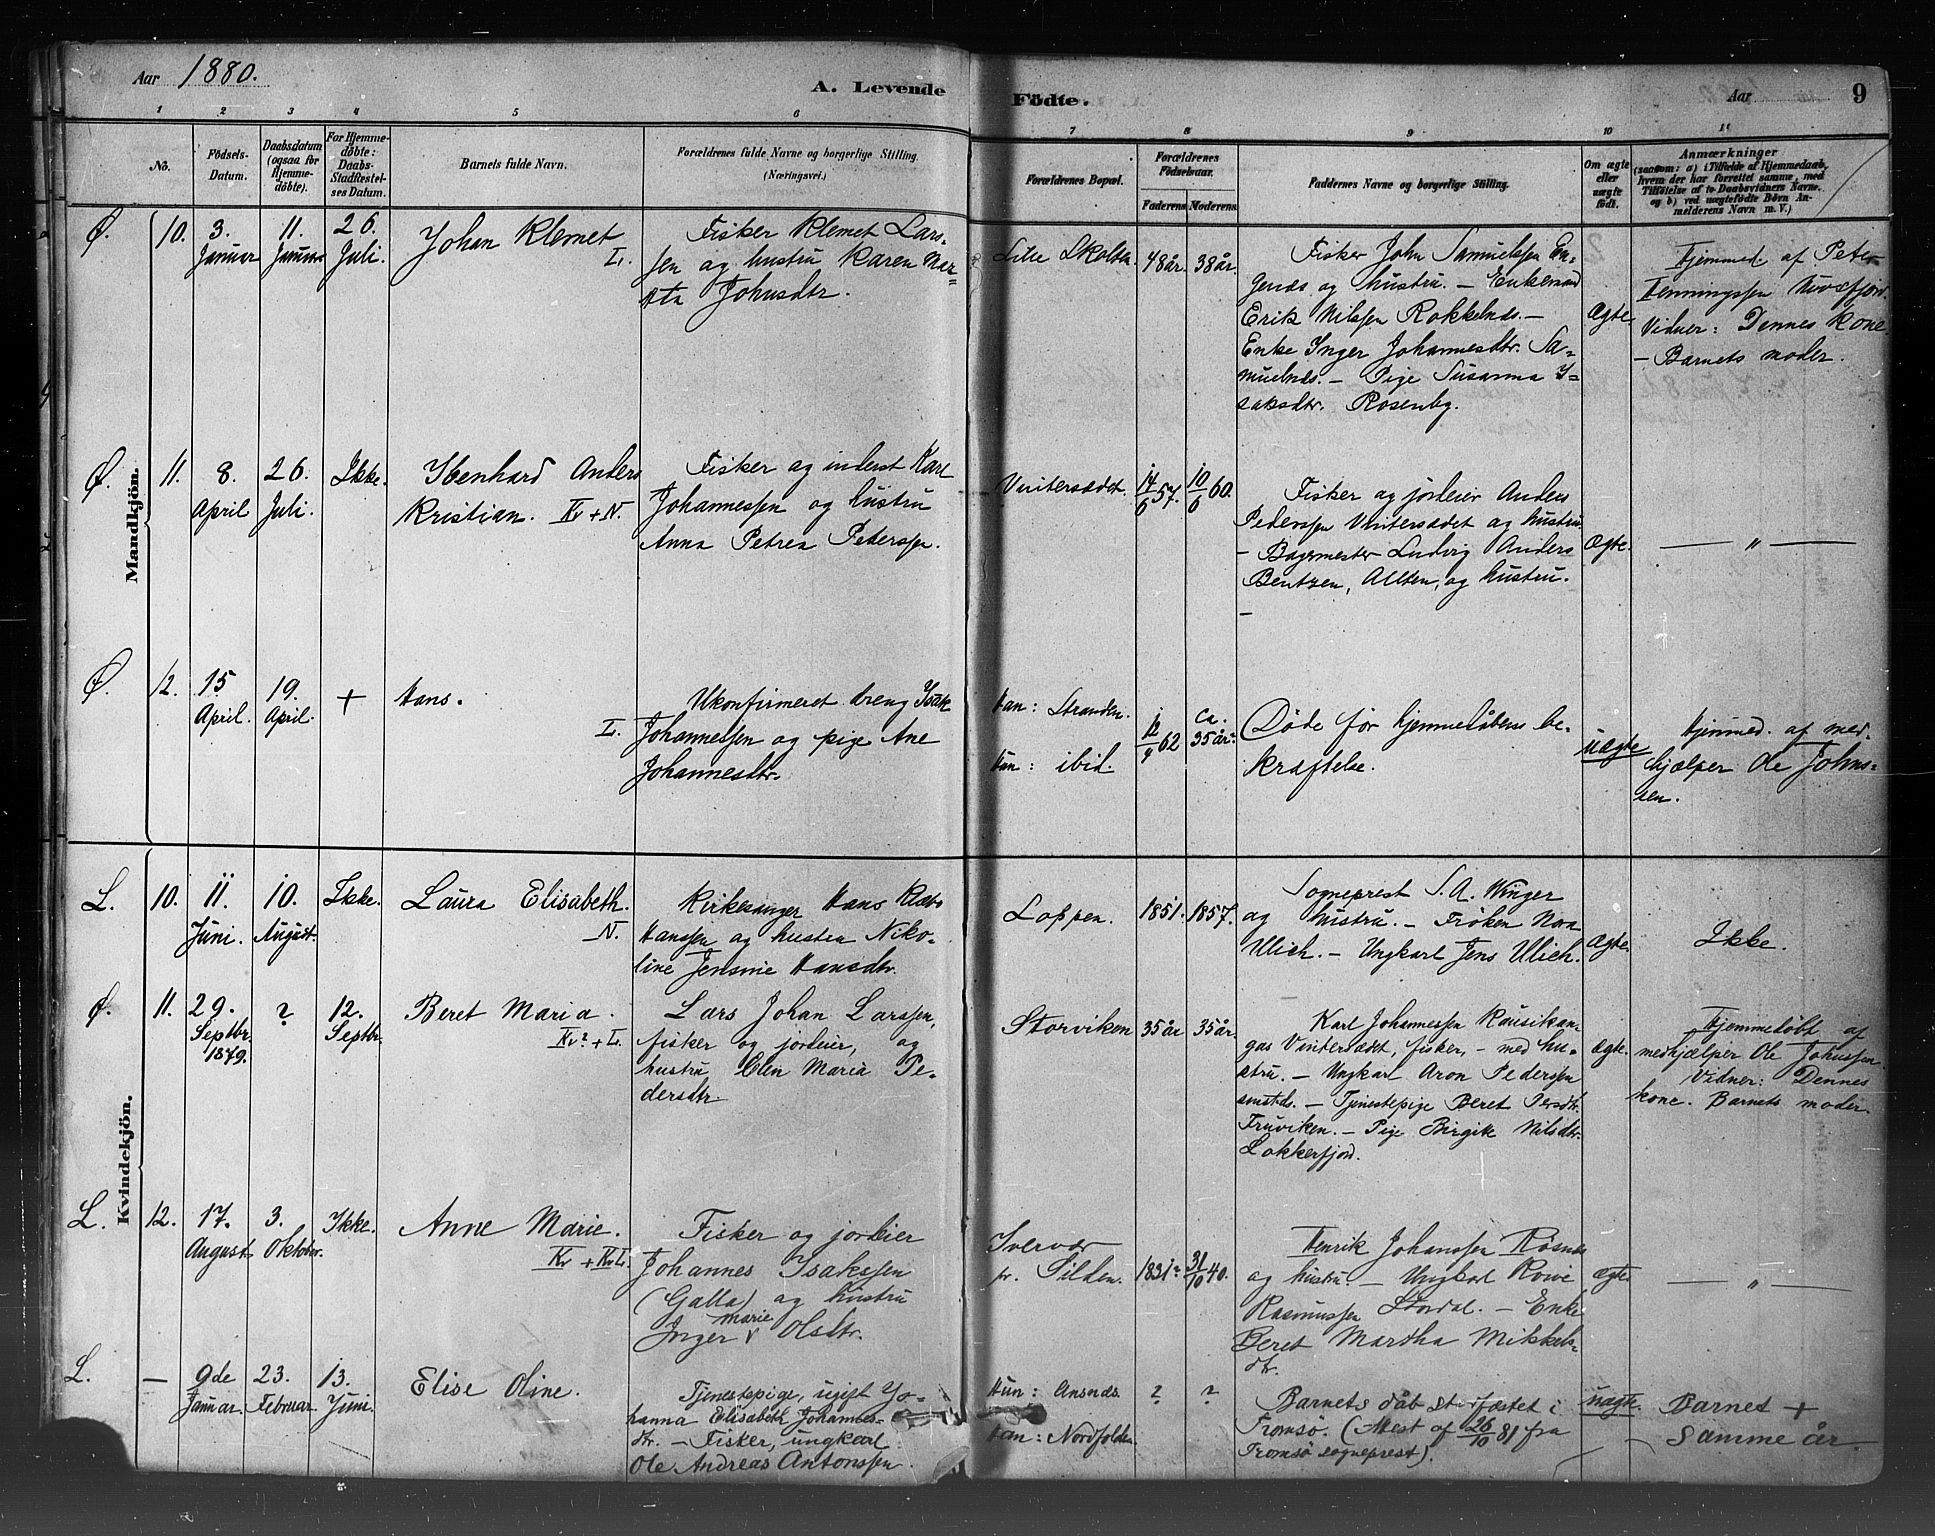 Aar 1880.
A. Levende
Födte.
Aar
9
1
2
3
4
5
6
7
8
9
10
11
No.
Födsels-
Datum.
Daabsdatum
(ogsaa for
Hjemme-
döbte).
For Hjemme-
döbte:
Daabs-
Stadfæstel-
ses Datum.
Barnets fulde Navn.
Forældrenes fulde Navne og borgerlige Stilling.
(Næringsvei.)
Forældrenes Bopæl.
Forældrenes
Födselsaar.
Faderens.
Moderens.
Faddernes Navne og borgerlige Stilling.
Om ægte
eller
uægte
födt.
Anmærkninger
(saasom: a) i Tilfælde af Hjemmedaab,
hvem der har forrettet samme, med
Tilföielse af to Daabsvidners Navne,
og b) ved uægtefödte Börn An-
melderens Navn m. V.)
Mandkjön.
Ø. 10. 3. Januar 11. Januar 26. Juli.
Johan Klemet
L.
Fisker Klemet Lars-
sen og hustru Karen Mar-
ta Johnsdtr.
Lille Skolten.
48år. 38år.
Fisker John Samuelssen En-
genæs og hustru. — Enkemand
Erik Nilssen Rokkelnæs. —
Enke Inger Johannesdtr. Sa-
muelnæs. — Pige Susanna I-
saksdtr. Rosenbg.
Ægte
Hjemmed. af Peter
Henningssen
Vidner: Dennes kone
— Barnets moder.
Ø. 11. 8. April 26. Juli. Ikke.
Ibenhard Anders
Kristian. Kv + N.
Fisker og inderst Karl
Johannessen og hustru
Anna Petrea Peterssen.
Vintersædet.
14/6 57. 10/6 60.
Fisker og jordeier Anders
Pederssen Vintersædet og hustru
— Bagermester Ludvig Anders
Bentzen, Alten, og hustru.
—
Ægte.
— „ —
Ø. 12. 15 April. 19. April. +
Hans.
L.
Ukonfirmeret dreng Isak
Johannessen og pige Ane
Johannesdtr.
Han: Stranden.
Hun: ibid.
12/4 62 ca. 35år.
Døde før hjemmedåbens be-
kræftelse.
uægte
Hjemmed. af med-
hjælper Ole Johns-
sen.
Kvindekjön.
L. 10. 11. Juni. 10. August. Ikke.
Laura Elisabeth.
N.
Kirkesanger Hans
Hanssen og hustru Niko-
line Jensine Hansdtr.
Loppen.
1851. 1857.
Sogneprest S. A. Winger
og hustru. — Frøken
Ulich. — Ungkarl Jens Ulich.
Ægte.
Ikke.
Ø. 11. 29. Septbr. 1879. ? 12. Septbr.
Beret Maria.
Kv? + L.
Lars Johan Larssen,
fisker og jordeier, og
hustru Elen Maria Pe-
dersdtr.
Storviken
35år 35år.
Karl Johannessen Rausikan-
gas Vintersædet, fisker, — med hu-
stru. — Ungkarl Aron Pederssen
smstds. — Tjenestepige Beret Persdtr.
Fruviken. — Pige Birgitte Nilsdtr.
Lokkerfjord.
ægte.
Hjemmedøbt af
medhjælper Ole Johnssen.
Vidner: Dennes
kone. Barnets moder.
L. 12. 17. August. 3. Oktober. Ikke.
Anne Marie.
Kv + KvL.
Fisker og jordeier
Johannes Isakssen
(Galla) og hustru
Inger marie Olsdtr.
Svervær
pr. Silden.
1831? 31/10 40.
Henrik Johanssen Røsnæs
og hustru — Ungkarl
Rasmussen Stordal. — Enke
Beret Martha Mikkels-
dtr.
ægte.
— „ —
L. — 9de Januar. 23. Februar. 13. Juni.
Elise Oline.
Tjenestepige, ugift Jo-
hanna Elisabeth Johannes-
dtr. — Fisker, ungkarl
Ole Andreas Antonssen.
Hun: Ansnæs.
Han: Nordfolden
? ?
Barnets dåb stadfæstet i
Tromsø. (Attest af 26/10 81 fra
Tromsø sogneprest).
uægte.
Barnet +
samme år.